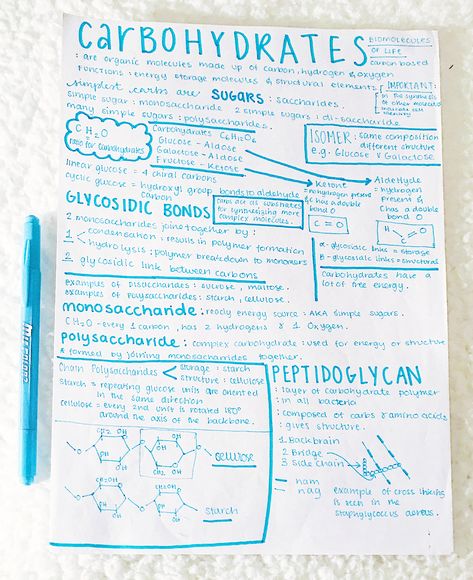 CARBOHYDRATES
BIOMOLECULES
OF LIFE
carbon based
: are organic molecules made up of carbon, hydrogen & oxygen
Functions : energy storage molecules & structural elements
IMPORTANT:
in the synthesis
of other molecules
simplest carbs are SUGARS : saccharides.
simple sugar : monosaccharide 2 simple sugars : di-saccharide
many simple sugars : polysaccharides.
C H2O
ratio for carbohydrates
Carbohydrates C6H12O6
Glucose - Aldose
Galactose - Aldose
Fructose - Ketose
ISOMER: same composition
different structure
e.g. Glucose & Galactose
linear glucose = 4 chiral carbons
cyclic glucose = hydroxyl group bonds to aldehyde
carbon
Ketone
= no hydrogen present
& C has a double
bond O
C = O
Aldehyde
= hydrogen
present &
C has a double
bond O
H C = O
GLYCOSIDIC BONDS
carbs act as substrates
for synthesising more
complex molecules.
2 monosaccharides joined together by :
1 condensation : results in polymer formation
hydrolysis : polymer breakdown to monomers
2 glycosidic link between carbons
α - glycosidic links = storage
B - glycosidic links = structural
carbohydrates have a
lot of free energy.
examples of disaccharides : sucrose, maltose.
examples of polysaccharides : starch, cellulose.
monosaccharide: ready energy source : AKA simple sugars.
CH2O - every 1 carbon, has 2 hydrogens & 1 Oxygen.
polysaccharide: complex carbohydrate : used for energy or structure
& formed by joining monosaccharides together.
Chain Polysaccharides < storage : starch
structure : cellulose
starch = repeating glucose units are oriented
in the same direction
cellulose = every 2nd unit is rotated 180°
around the axis of the backbone.
cellulose
starch
PEPTIDOGLYCAN
: layer of carbohydrate polymer
: in all bacteria
: composed of carbs & amino acids
: gives structure.
1. Backbrain
2. Bridge
3. side chain
nam
nag
example of cross linking
is seen in the
staphylococcus aureus.